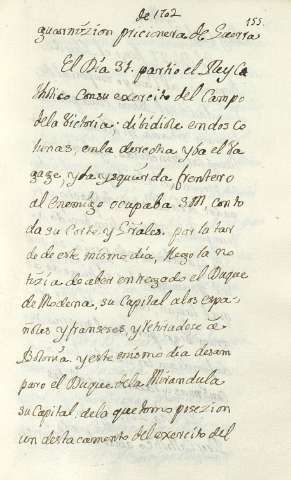 de 1702
155.
guarnizion pricionera de Guerra
El Dia 31. partio el Rey Ca
tholico con su exercito del Campo
de la Victoria; dibidiole en dos co
lunas, en la derecha yba el Ba
gage, y la ysquierda, frontero
al Enemigo ocupaba S M, con to
da su Corte, y Grãles. por la tar
de de este mismo dia, llego la no
tizia de aber entregado el Duque
de Modena, su Capital a los espa-
ñoles y franseses, y retiradose a
Bolonia. y este mismo dia desam
paro el Duque de la Mirandula
su Capital, de la que tomo posezion
un destacamento del exercito del